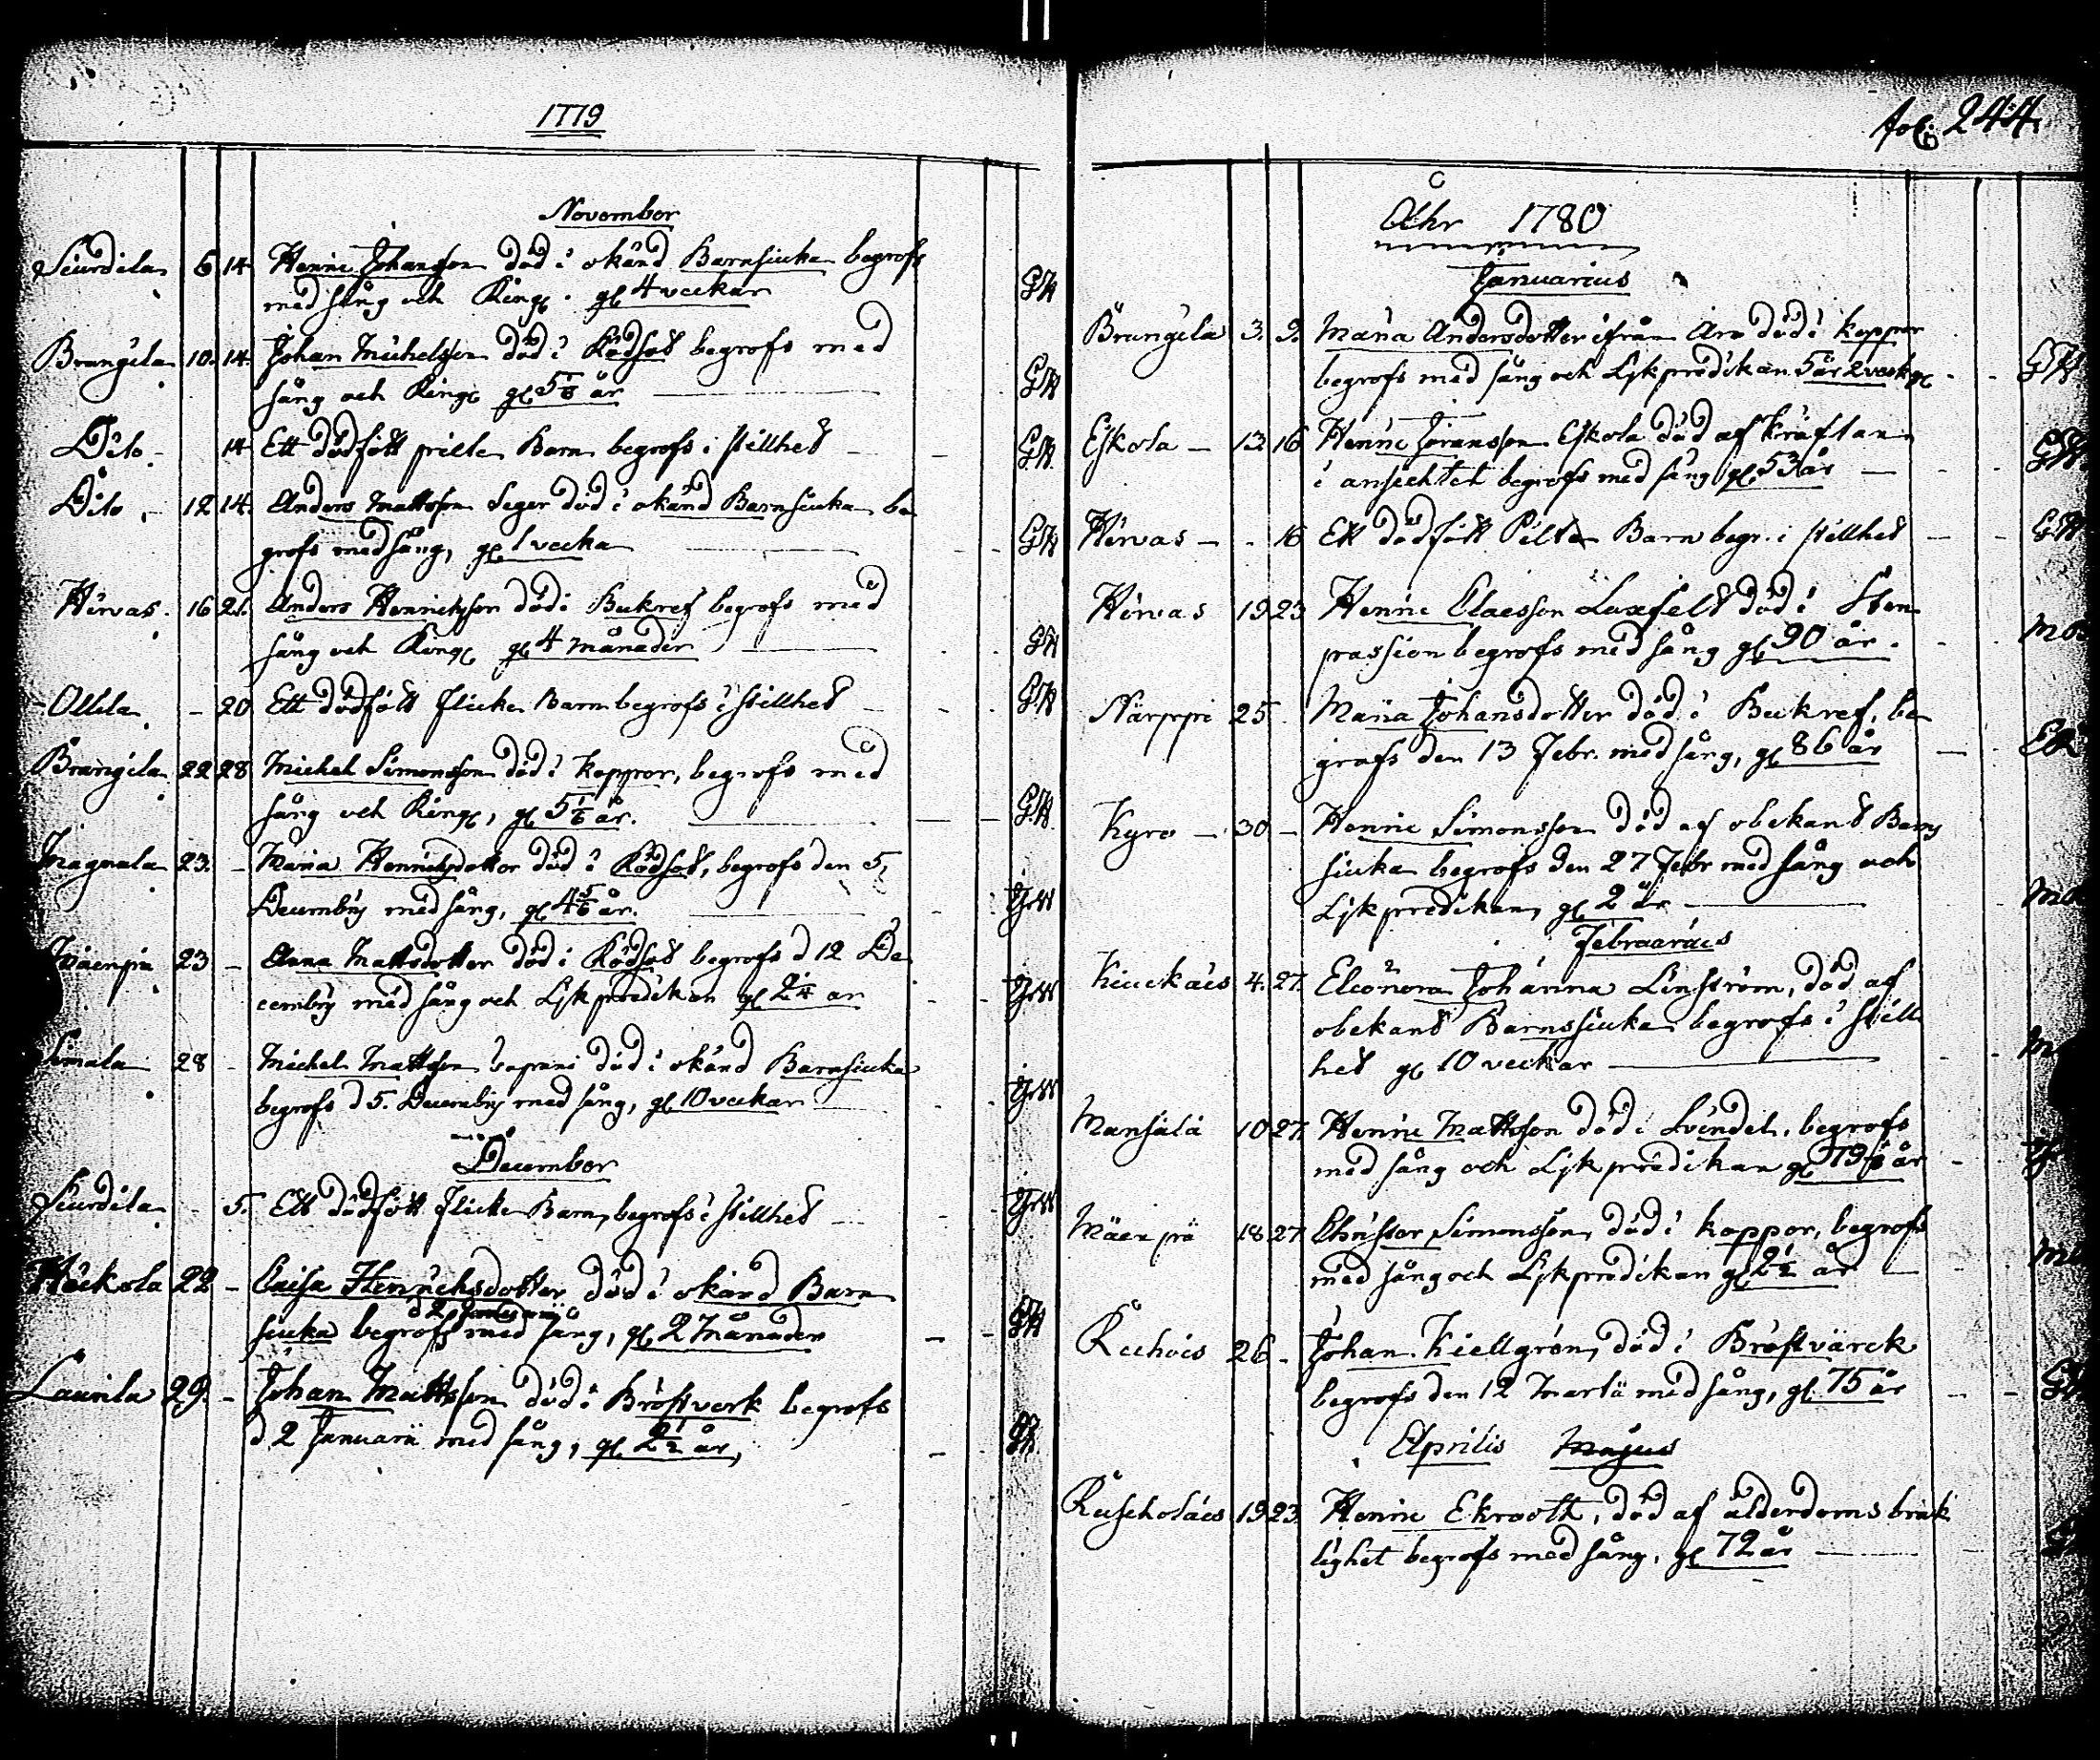 1779
November
Siurdila 6 14 Henric Johansson död i okänd Barnsiuka begrofs
med sång och Ring. gl 4 veckar GH
Brangila 10. 14. Johan Michelsson död i Rödsot begrofs med
sång och Ring gl 5 1/6 år GH
Dito 14 Ett dödfött pilte Barn begrofs i stillhet GH
Dito 12 14 Anders Mattsson Seger död i okänd Barnsiuka be
grofs med sång, gl 1 vecka GH
Hirvas 16 21. Anders Henrichsson död i Bukref begrofs med
sång och Ring gl 4 månader GH
Ollila - 20 Ett dödfött flicke Barn begrofs i stillhet GH
Brangila 22 28 Michel Simonsson död i Koppor, begrofs med
sång och Ring, gl 5 1/6 år. GH
Magnula 23. - Maria Henrichsdotter död i Rödsot, begrofs den 5
Decembris med sång, gl 4 5/6 år.
Mäenpä 23 - Anna Mattsdotter död i Rödsot begrofs d 12 De
cembris med sång och Ljkpredikan gl 2 1/4 år
Simala 28 - Michel Mattsson död i okänd Barnsiuka
begrofs d 5. Decembris med sång, gl 10 veckar
December
Siurdila - 5. Ett dödfött flicke Barn, begrofs i stillhet
Häckola 22 - Caisa Henrichsdotter död i okänd Barn
d 2 Januarii
siuka begrofs med sång, gl 2 Månader GH
Laurila 29. - Johan Mattsson död i Bröstverk begrofs
d 2 Januarii med sång, gl 2 1/2 år,
fol: 244.
Åhr 1780
Januarius
Brangila 3. 9. Maria Andersdotter ifrån Aro död i koppor
begrofs med sång och Ljkpredikan 5 år 2 veck gl GH
Eskola - 13 16 Henric Göransson Eskola död af kräftan
i ansechtet begrofs med sång gl 53 år GH
Hirvas - - 16 Ett dödfött Pilte Barn begr. i stillhet GH
Hirvas 19 23 Henric Claesson Laxfelt död i Sten
passion begrofs med sång gl 90 år.
Närppi 25 Maria Johansdotter död i Bukref, be
grofs den 13 Febr. med sång, gl 86 år
Kyro - 30 - Henric Simonsson död af obekant Barns
siuka begrofs den 27 Febr med sång och
Ljkpredikan, gl 2 år
Februarius
Kiuckais 4. 27. Eleonora Johanna Linström, död af
obekant Barnssiuka begrofs i still
het gl 10 veckar
Mansala 10 27. Henric Mattsson död i Svindel. begrofs
med sång och Ljkpredikan gl 79 år
Mäenpä 18 27 Christer Simonsson, död i koppor, begrofs
med sång och Ljkpredikan gl 2 1/2 år
Rechois 26 - Johan Kiellgrén, död i Bröstvärck
begrofs den 12 Martii med sång, gl. 75 år
Aprilis Majus
Ruskolais 19 23. Henric Ekrooth, död af ålderdoms bräk
lighet begrofs med sång, gl 72 år